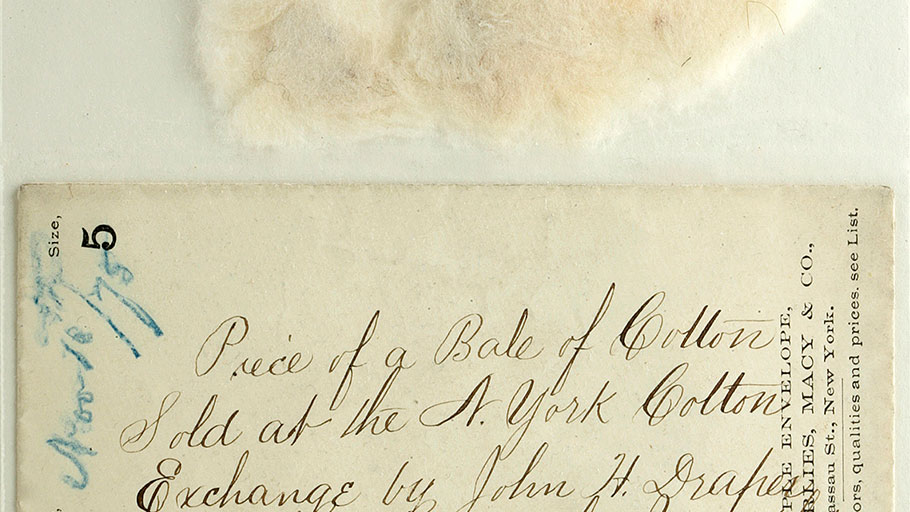 Piece of a Bale of Cotton
Sold at the N. York Cotton
Exchange by John H. Draper
Size,
5
Nov 18/75
PLE ENVELOPE,
RLIES, MACY & CO.,
assau St., New York.
ors, qualities and prices. see List.